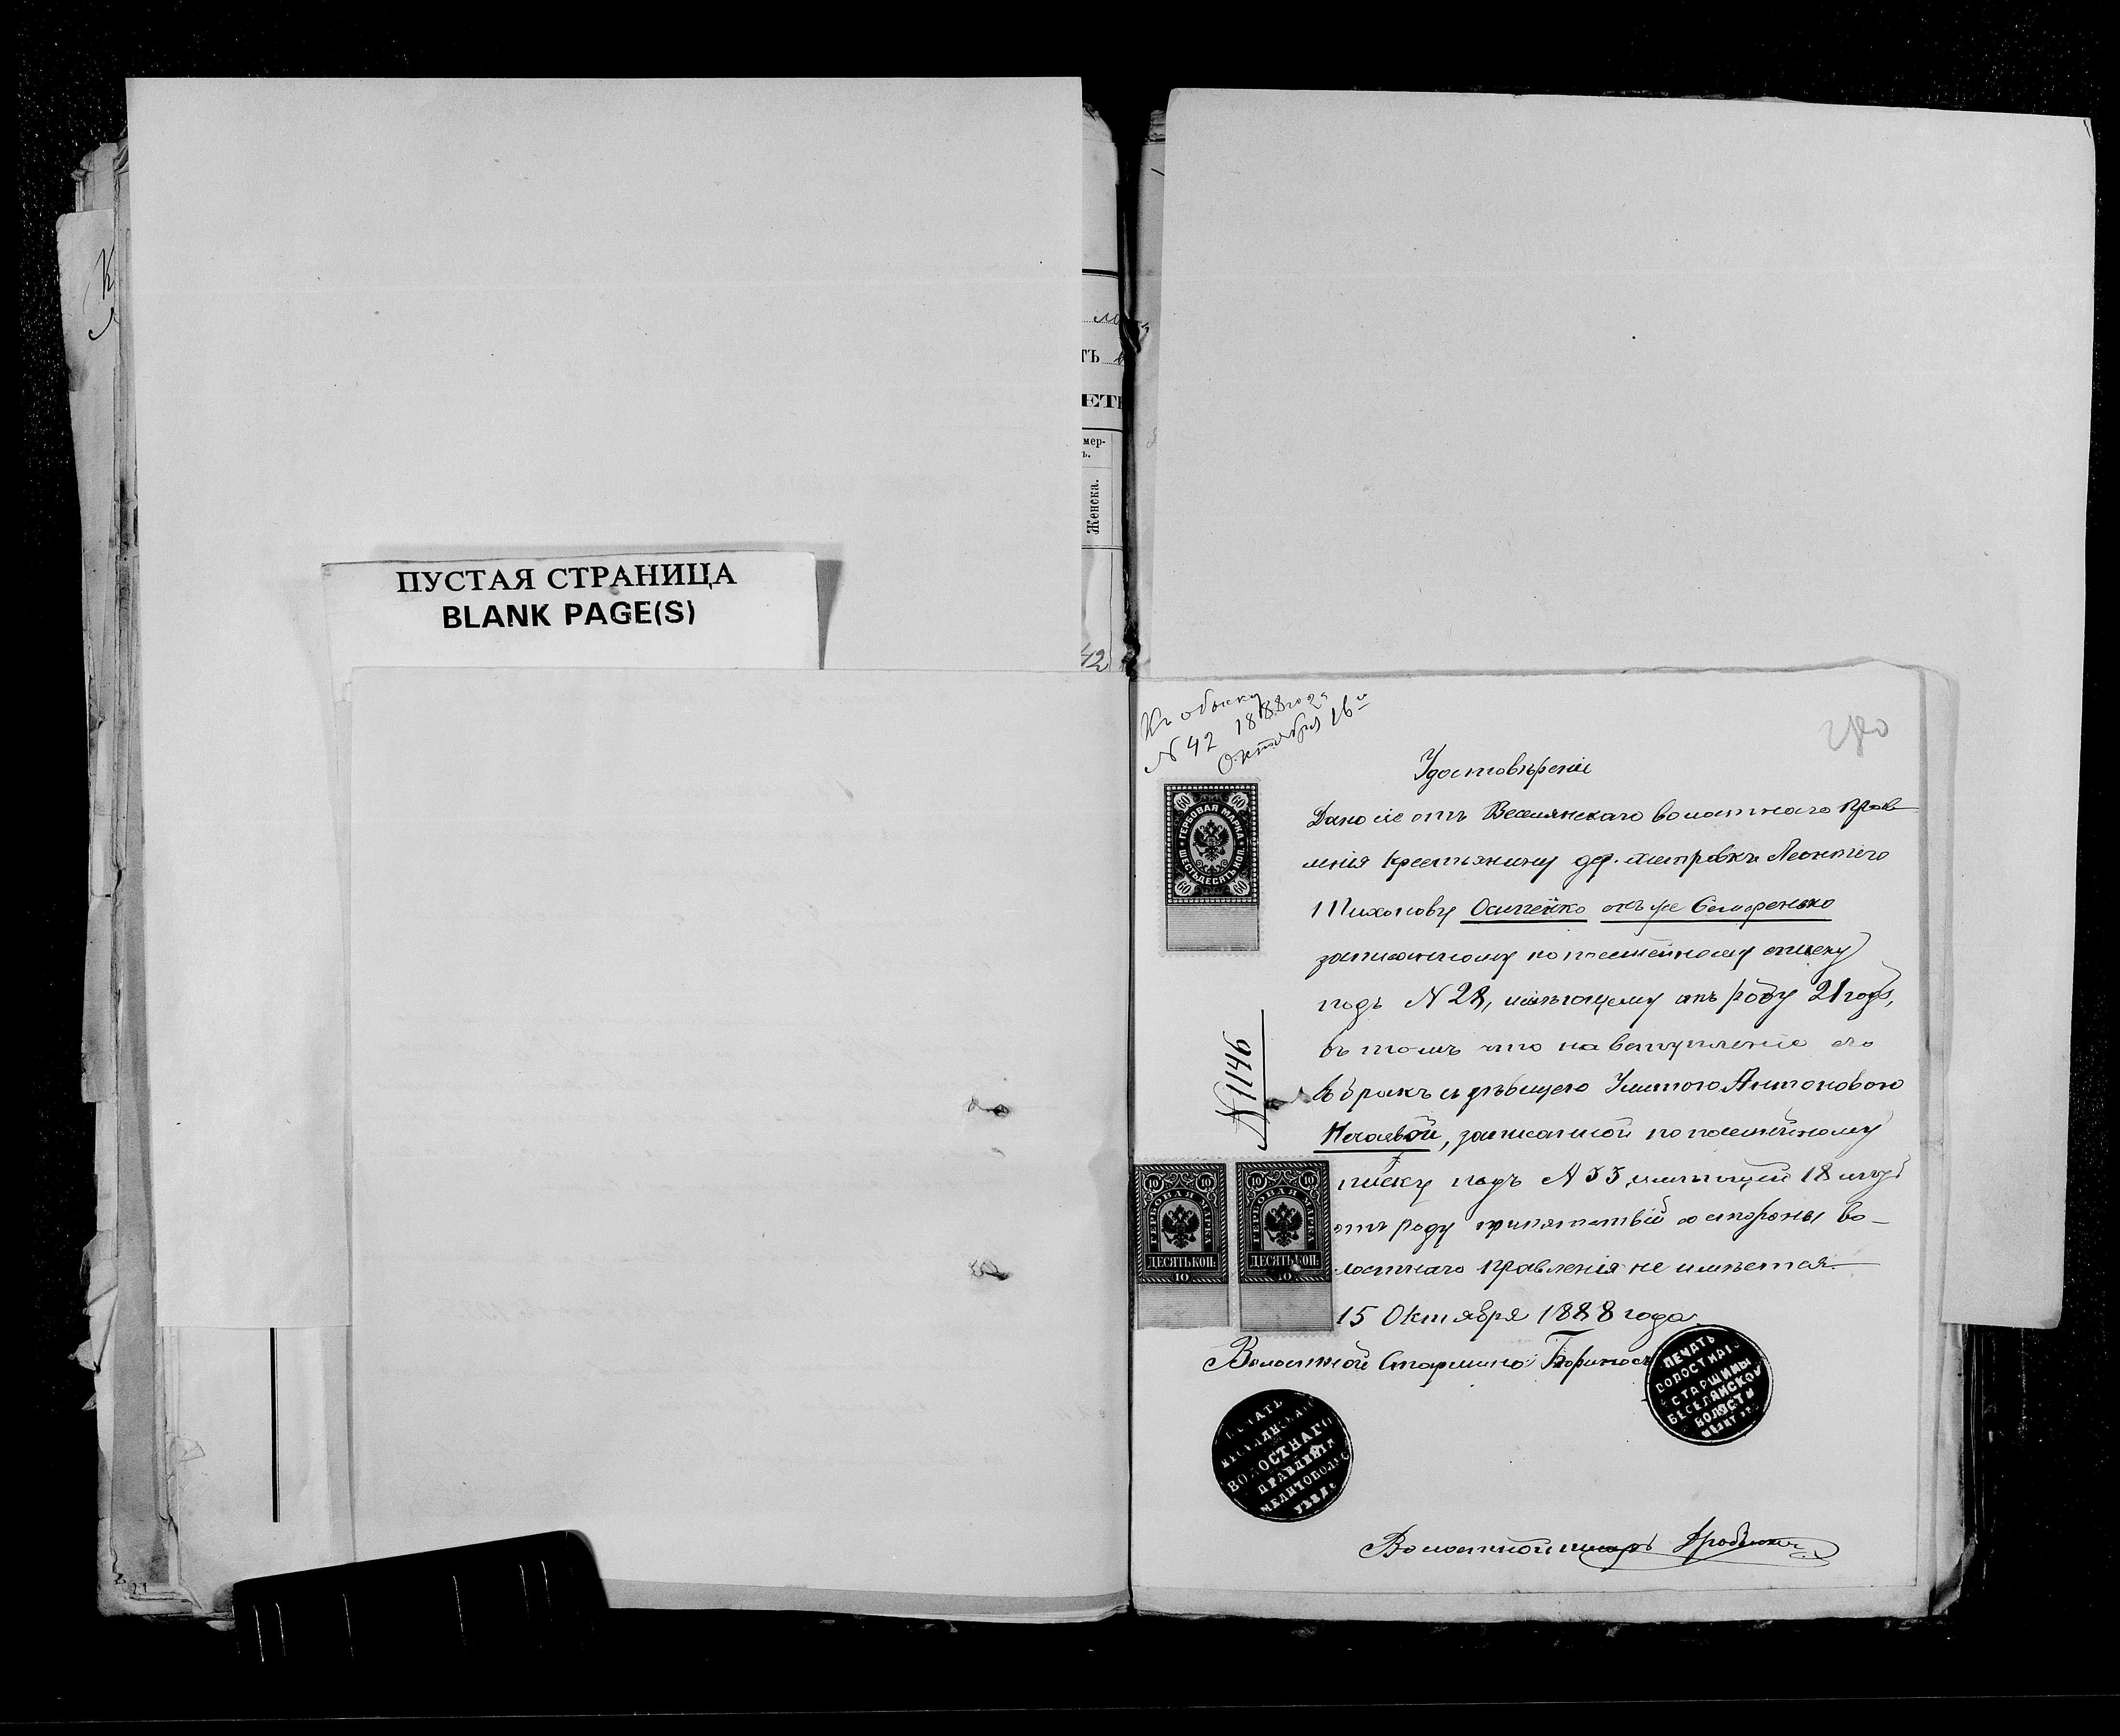 мер-
ъ.
Женска.
42
ПУСТАЯ СТРАНИЦА
BLANK PAGE(S)
Къ обыску
N 42 1888 года
Октября 16го
Удостовѣреніе
Дано сіе отъ Веселянскаго волостнаго прав
ленія крестьянину дер. Леонтію
Тихонову Осипенко онъ же
записанному по посемейному списку
подъ N 28, имѣющему отъ роду 21 годъ,
въ томъ что на вступленіе его
въ бракъ съ дѣвицею Антоновою
Нечаевой, записанной по посемейному
списку подъ N 33, имѣющей 18 лѣтъ
отъ роду препятствій со стороны во-
лостнаго правленія не имѣется.
15 Октября 1888 года.
Волостной Старшина
Волостной писарь
N 1146
60 60
ГЕРБОВАЯ МАРКА
ШЕСТЬДЕСЯТЬ КОП.
60 60
10 10
ГЕРБОВАЯ МАРКА
ДЕСЯТЬ КОП.
10
10 10
ГЕРБОВАЯ МАРКА
ДЕСЯТЬ КОП.
10
ПЕЧАТЬ
ВОЛОСТНАГО
СТАРШИНЫ
ВЕСЕЛЯНСКОЙ
ВОЛОСТИ
ПЕЧАТЬ
ВЕСЕЛЯНСКАГО
ВОЛОСТНАГО
ПРАВЛЕНІЯ
МЕЛИТОПОЛЬС
УѢЗДА